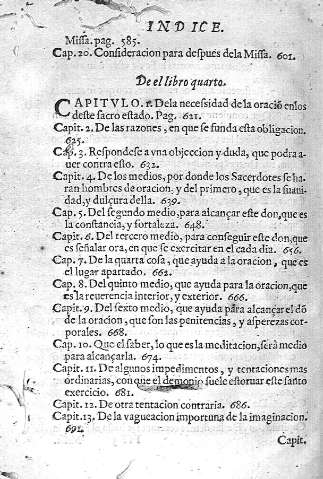 INDICE.
Missa. pag. 585.
Cap. 20. Consideracion para despues dela Missa. 601.
De el libro quarto.
CAPITVLO. 1. Dela necessidad de la oraciō enlos
deste sacro estado. Pag. 621.
Capit. 2. De las razones, en que se funda esta obligacion.
625.
Cap. 3. Respondese a vna objeccion y duda, que podra a-
uer contra esto. 632.
Capit. 4. De los medios, por donde los Sacerdotes se ha-
ran hombres de oracion. y del primero, que es la suaui-
dad, y dulçura della. 639.
Cap. 5. Del segundo medio, para alcançar este don, que es
la constancia, y fortaleza. 648.
Capit. 6. Del tercero medio, para conseguir este don, que
es señalar ora, en que se exercitar en el cada dia. 656.
Cap. 7. De la quarta cosa, que ayuda a la oracion, que es
el lugar apartado. 662.
Cap. 8. Del quinto medio, que ayuda para la oracion, que
es la reuerencia interior, y exterior. 666.
Capit. 9. Del sexto medio, que ayuda para alcançar el dō
de la oracion, que son las penitencias, y asperezas cor-
porales. 668.
Cap. 10. Que el saber, lo que es la meditacion, serà medio
para alcançarla. 674.
Capit. 11. De algunos impedimentos, y tentaciones mas
ordinarias, con que el demonio suele estoruar este santo
exercicio. 681.
Capit. 12. De otra tentacion contraria. 686.
Capit. 13. De la vagueacion importuna de la imaginacion.
691.
Capit.